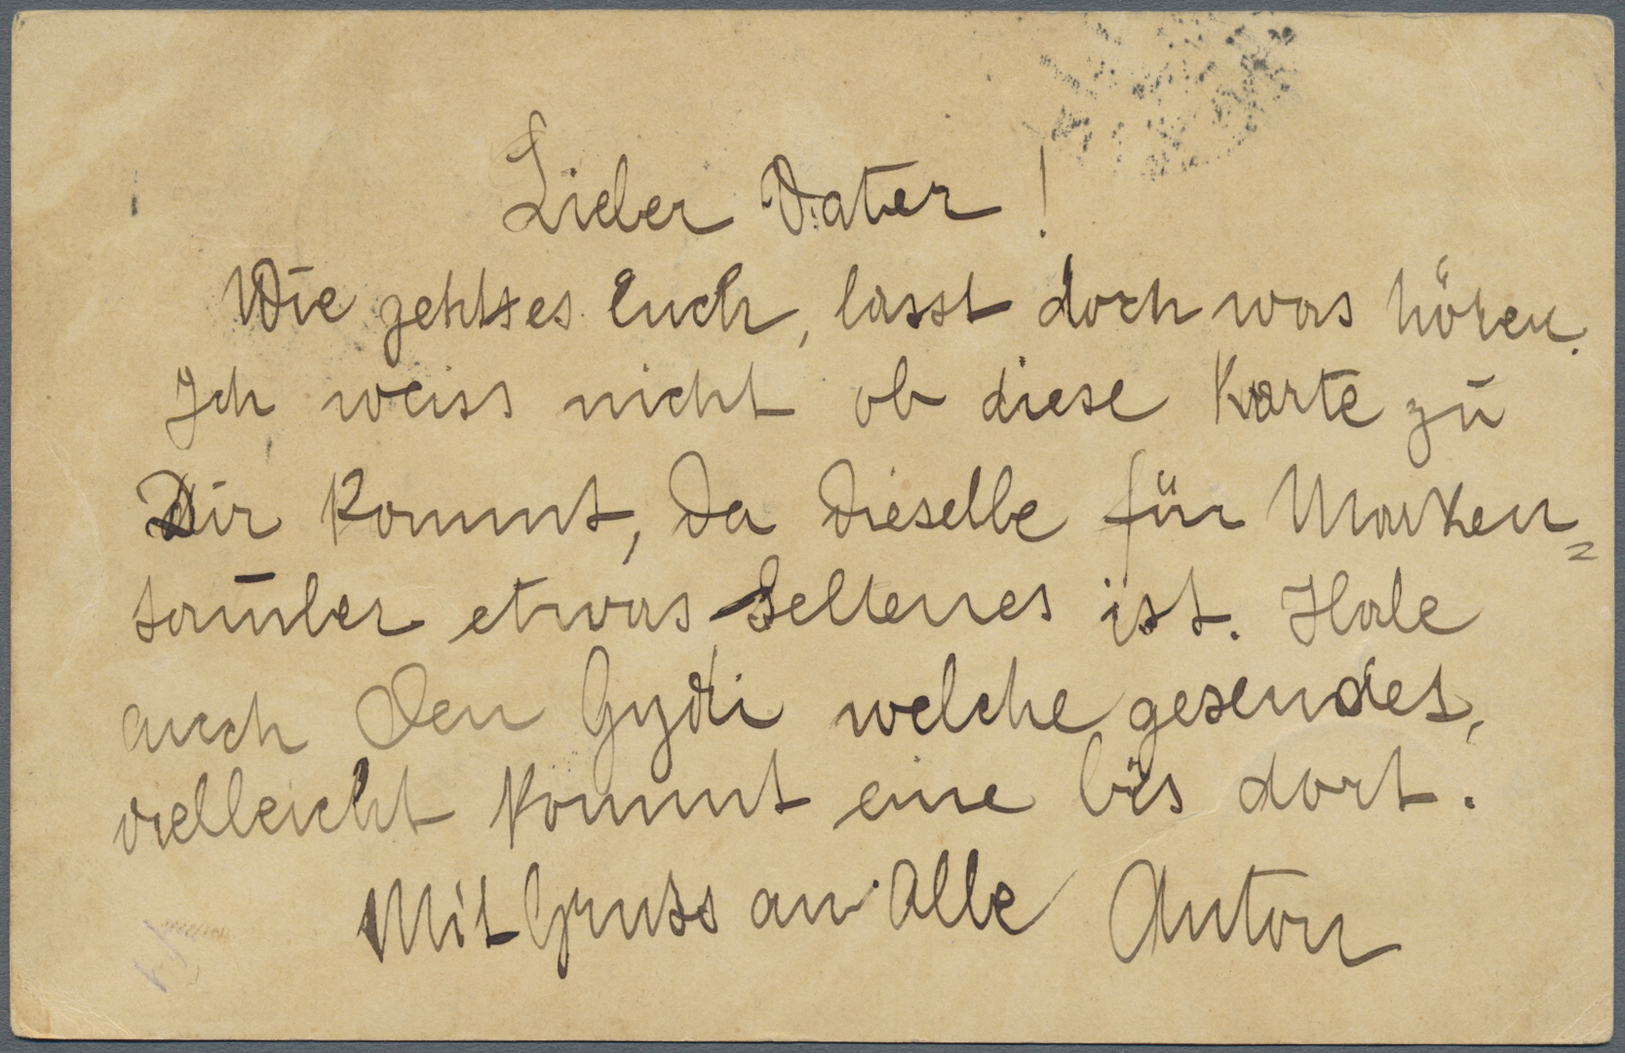 Lieber Vater!
Wie gehts es Euch, lasst doch was hören.
Ich weiss nicht ob diese Karte zu
Dir kommt, da dieselbe für Marken=
samler etwas Seltenes ist. Habe
auch den welche gesendet,
vielleicht kommt eine bis dort.
Mit Gruss an Alle Anton